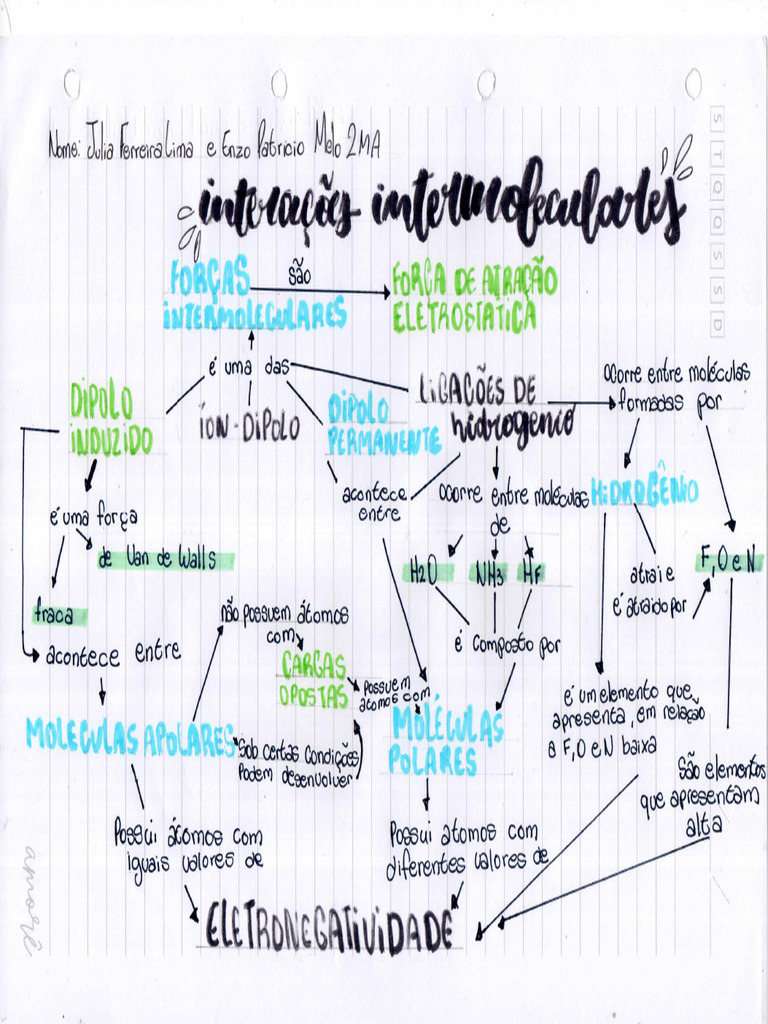 Nome: Julia Ferreira Lima e Enzo Patricio Melo 2MA
S T Q Q S S D
interações intermoleculares
FORÇAS
INTERMOLECULARES
são
FORÇA DE ATRAÇÃO
ELETROSTÁTICA
é uma das
DIPOLO
INDUZIDO
ÍON-DIPOLO
DIPOLO
PERMANENTE
LIGAÇÕES DE
hidrogenio
Ocorre entre moléculas
formadas por
é uma força
de Van de Walls
fraca
acontece entre
acontece
entre
Ocorre entre moléculas
de
HIDROGÊNIO
H2O NH3 HF
F, O e N
atrai e
é atraido por
é composto por
não possuem átomos
com
CARGAS
OPOSTAS
possuem
atomos com
MOLECULAS APOLARES
Sob certas condições
Podem desenvolver
MOLÉCULAS
POLARES
é um elemento que
apresenta, em relação
a F, O e N baixa
São elementos
que apresentam
alta
Possui átomos com
iguais valores de
Possui atomos com
diferentes valores de
ELETRONEGATIVIDADE
amorê